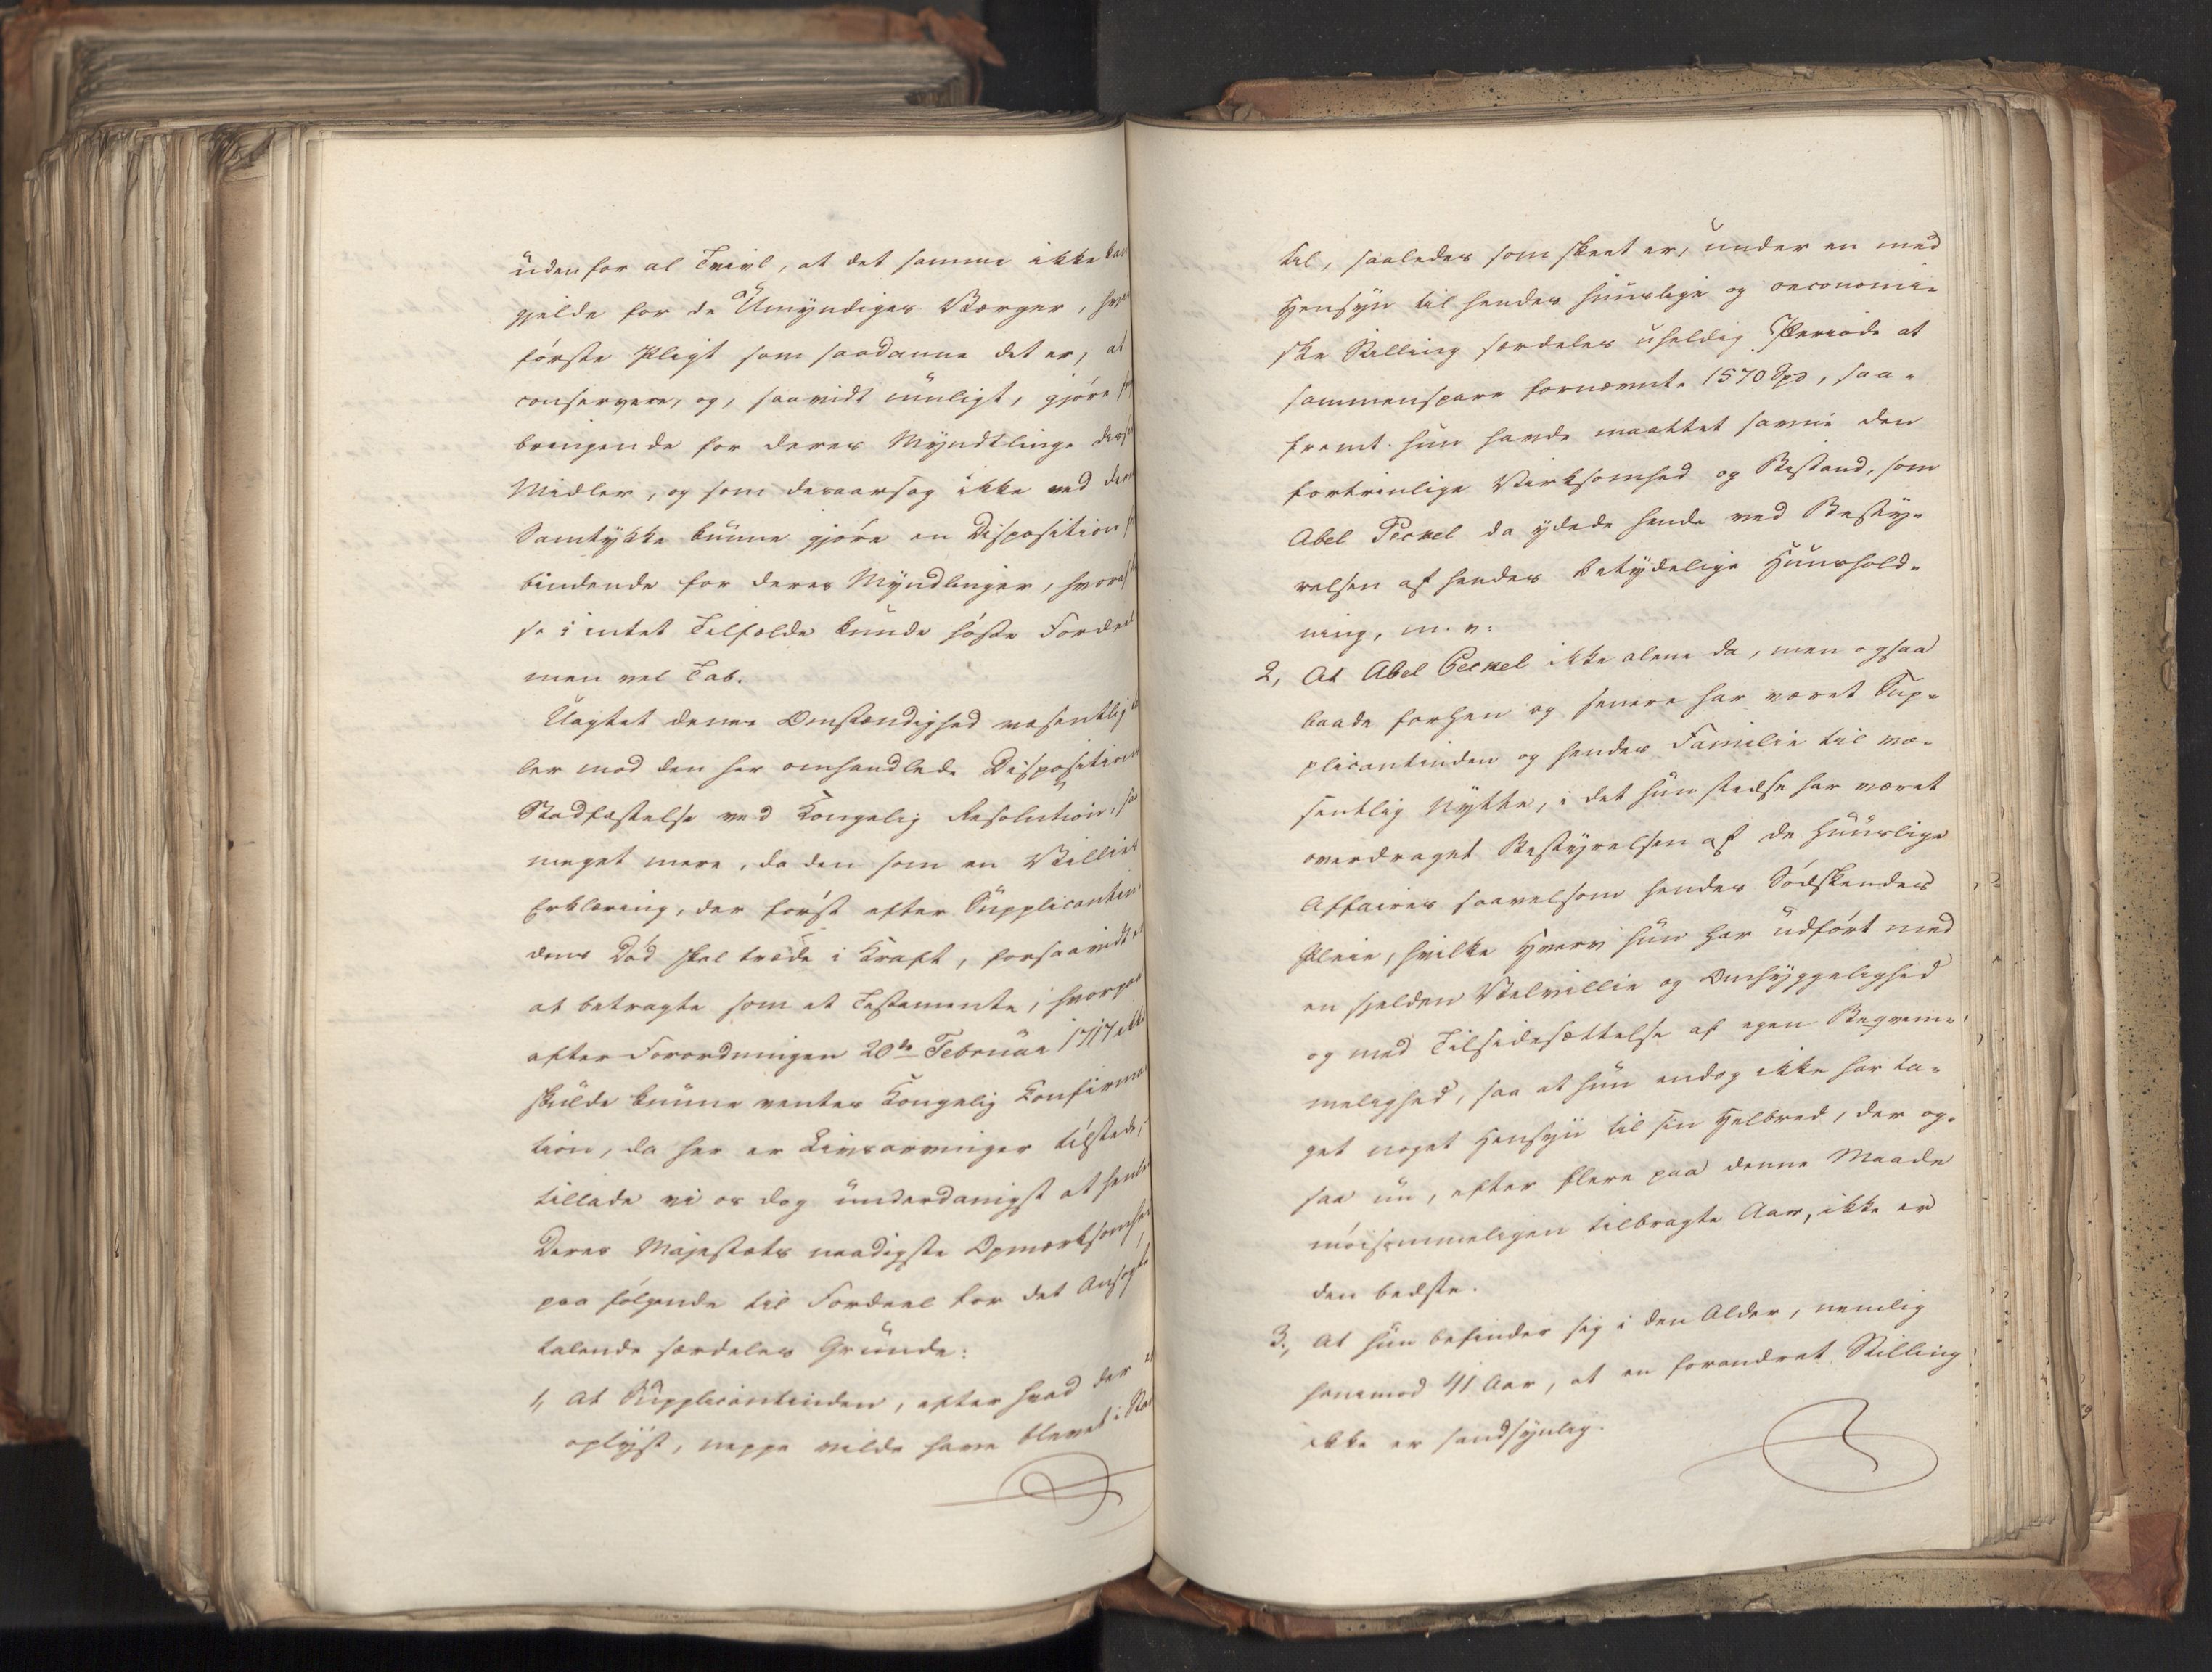 uden for al Tvivl, at det samme ikke kan
gjelde for de Umyndiges Værger, hvis
første Pligt som saadanne det er, at
conservere, og, saavidt muligt, gjøre
bringende for deres Myndtlinge disse
Midler, og som desaarsag ikke ved deres
Samtykke kunne gjøre en Disposition
bindende for deres Myndlinger, hvoraf
se i intet Tilfælde kunde høste Fordeel
men vel Tab.
Uagtet denne Omstændighed væsentlig
ler mod den her omhandlede Dispositions
Stadfæstelse ved Kongelig Resolution, saa
meget mere, da den som en Villies
Erklæring, der først efter Supplicantin
dens Død skal træde i Kraft, forsaavidt er
at betragte som et Testamente, hvorpaa
efter Forordningen 20de Februar 1717 ikke
skulde kunne ventes Kongelig Confirma
tion, da her er Livsarvinger tilstede,
tillade vi os dog underdanigst at henlede
Deres Majestæts naadigste Opmærksomhed
paa følgende til Fordeel for det Ansøgte
talende særdeles Grunde:
1, At Supplicantinden, efter hvad der er
oplyst, neppe vilde have blevet i Stand
til, saaledes som skeet er, under en med
Hensyn til hendes huuslige og oeconomi-
ske Stilling særdeles uheldig Periode at
sammenspare fornævnte 1570 Spd, saa-
fremt hun havde maattet savne den
fortrinlige Virksomhed og Bistand, som
Abel Peckel da ydede hende ved Besty-
relsen af hendes betydelige Huushold-
ning, m. v.
2, At Abel Peckel ikke alene da, men ogsaa
baade forhen og senere har været Sup-
plicantinden og hendes Familie til væ-
sentlig Nytte, i det hun stedse har været
overdraget Bestyrelsen af de huuslige
Affairer saavelsom hendes Sødskendes
Pleie, hvilke Hverv hun har udført med
en sjelden Velvillie og Omhyggelighed
og med Tilsidesættelse af egen Beqvem-
melighed, saa at hun endog ikke har ta-
get noget Hensyn til sin Helbred, der og-
saa nu, efter flere paa denne Maade
møisommeligen tilbragte Aar, ikke er
den bedste.
3, At hun befinder sig i den Alder, nemlig
henimod 41 Aar, at en forandret Stilling
ikke er sandsynlig.